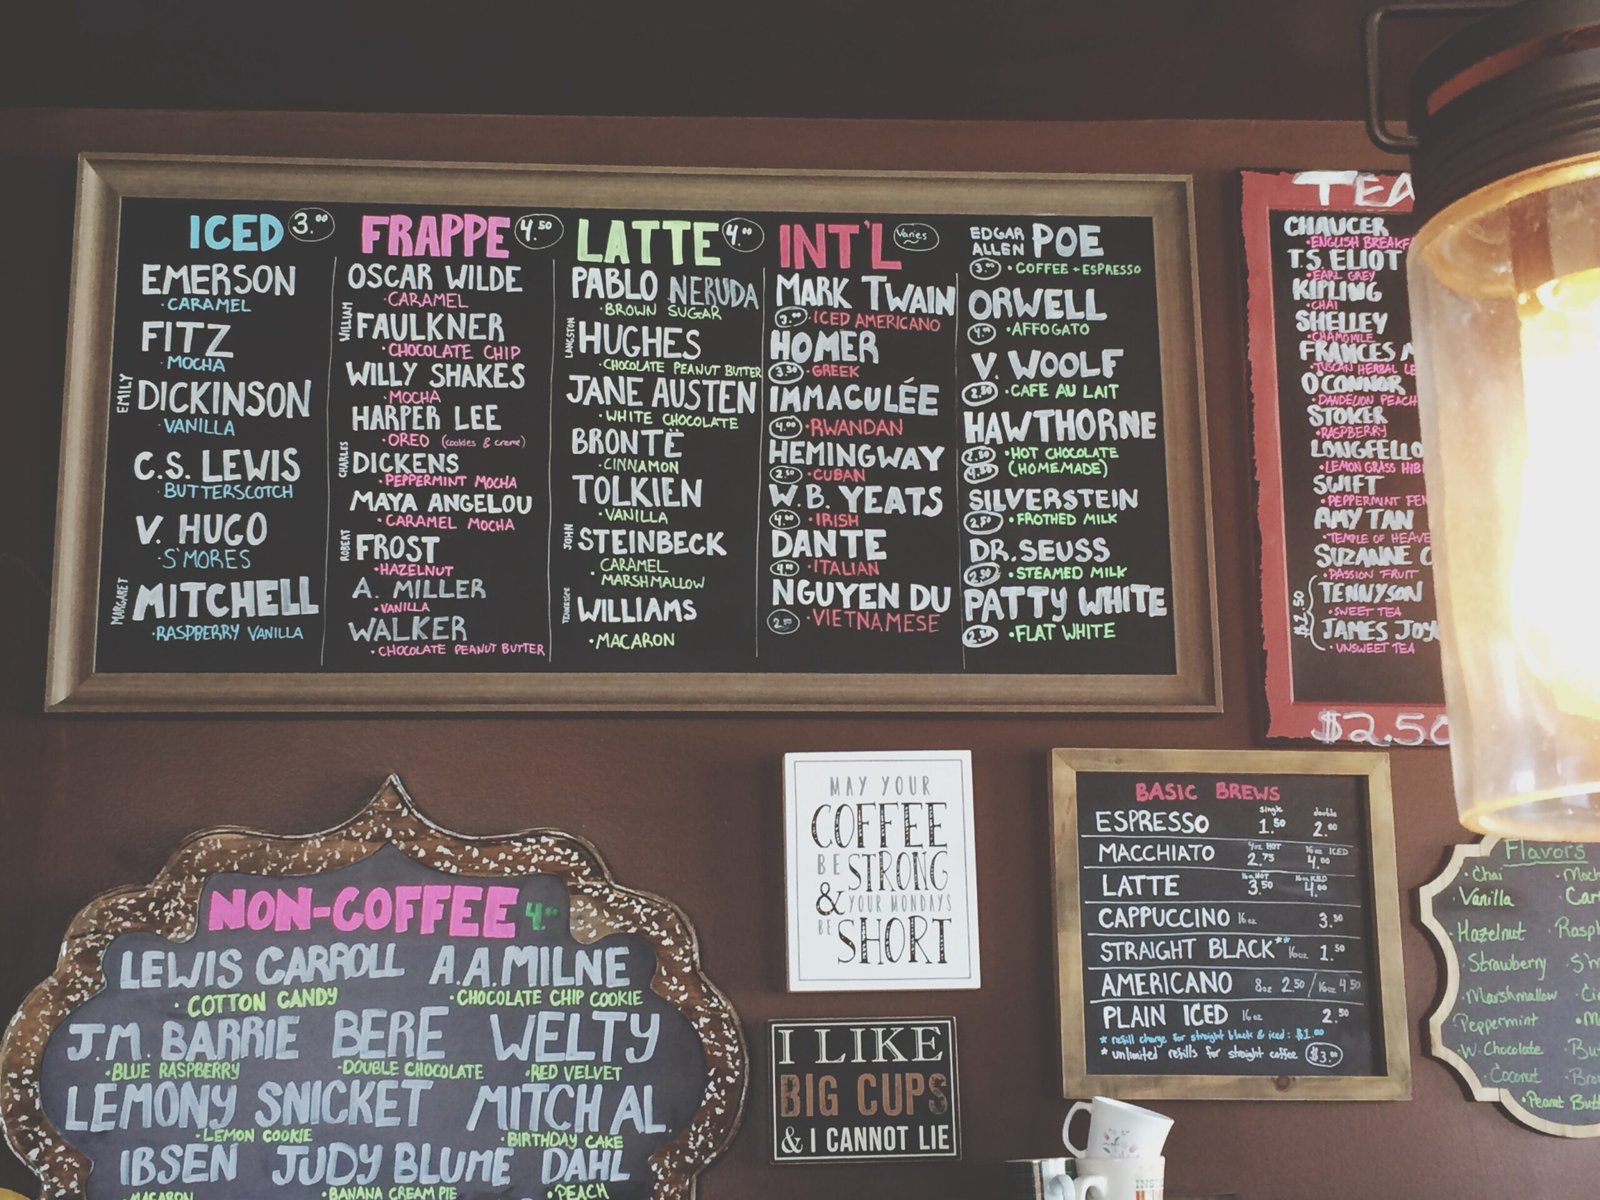 ICED 3.00
EMERSON
·CARAMEL
FITZ
·MOCHA
EMILY DICKINSON
·VANILLA
C.S. LEWIS
·BUTTERSCOTCH
V. HUGO
·S'MORES
MARGARET MITCHELL
·RASPBERRY VANILLA
FRAPPE 4.50
OSCAR WILDE
·CARAMEL
WILLIAM FAULKNER
·CHOCOLATE CHIP
WILLY SHAKES
·MOCHA
HARPER LEE
·OREO (cookies & creme)
CHARLES DICKENS
·PEPPERMINT MOCHA
MAYA ANGELOU
·CARAMEL MOCHA
ROBERT FROST
·HAZELNUT
A. MILLER
·VANILLA
WALKER
·CHOCOLATE PEANUT BUTTER
LATTE 4.00
PABLO NERUDA
·BROWN SUGAR
LANGSTON HUGHES
·CHOCOLATE PEANUT BUTTER
JANE AUSTEN
·WHITE CHOCOLATE
BRONTË
·CINNAMON
TOLKIEN
·VANILLA
JOHN STEINBECK
·CARAMEL
MARSHMALLOW
TENNESSEE WILLIAMS
·MACARON
INT'L Varies
MARK TWAIN
3.00 ·ICED AMERICANO
HOMER
3.50 ·GREEK
IMMACULÉE
4.00 ·RWANDAN
HEMINGWAY
2.50 ·CUBAN
W.B. YEATS
4.00 ·IRISH
DANTE
4.00 ·ITALIAN
NGUYEN DU
·VIETNAMESE
EDGAR ALLEN POE
3.00 ·COFFEE + ESPRESSO
ORWELL
4.00 ·AFFOGATO
V. WOOLF
2.50 ·CAFE AU LAIT
HAWTHORNE
2.50 ·HOT CHOCOLATE
4.50 (HOMEMADE)
SILVERSTEIN
2.50 ·FROTHED MILK
DR. SEUSS
2.50 ·STEAMED MILK
PATTY WHITE
·FLAT WHITE
TEA
CHAUCER
·ENGLISH BREAKF
T.S. ELIOT
·EARL GREY
KIPLING
·CHAI
SHELLEY
·CHAMOMILE
FRANCES M
·TUSCAN HERBAL LE
O'CONNOR
·DANDELION PEACH
STOKER
·RASPBERRY
LONGFELLO
·LEMON GRASS HIB
SWIFT
·PEPPERMINT FEN
AMY TAN
·TEMPLE OF HEAVE
SUZANNE C
·PASSION FRUIT
$2.50
TENNYSON
·SWEET TEA
JAMES JOY
·UNSWEET TEA
$2.50
NON-COFFEE 4.00
LEWIS CARROLL A.A.MILNE
·COTTON CANDY ·CHOCOLATE CHIP COOKIE
J.M. BARRIE BERE WELTY
·BLUE RASPBERRY ·DOUBLE CHOCOLATE ·RED VELVET
LEMONY SNICKET MITCH AL.
·LEMON COOKIE ·BIRTHDAY CAKE
IBSEN JUDY BLUME DAHL
·MACARON ·BANANA CREAM PIE ·PEACH
MAY YOUR
COFFEE
BE STRONG
& YOUR MONDAYS
BE SHORT
I LIKE
BIG CUPS
& I CANNOT LIE
BASIC BREWS
single double
ESPRESSO 1.50 2.00
4oz HOT 16oz ICED
MACCHIATO 2.75 4.00
16oz HOT 16oz ICED
LATTE 3.50 4.00
CAPPUCCINO 16oz 3.50
STRAIGHT BLACK** 16oz 1.50
AMERICANO 8oz 2.50/16oz 4.50
PLAIN ICED 16oz 2.50
* refill charge for straight black & iced: $1.00
* unlimited refills for straight coffee $3.00
Flavors
·Chai ·Moch
·Vanilla Car
·Hazelnut ·Raspb
·Strawberry S'm
·Marshmallow ·Ci
·Peppermint ·M
·W. Chocolate ·Bu
·Coconut ·Bro
·Peanut Butt